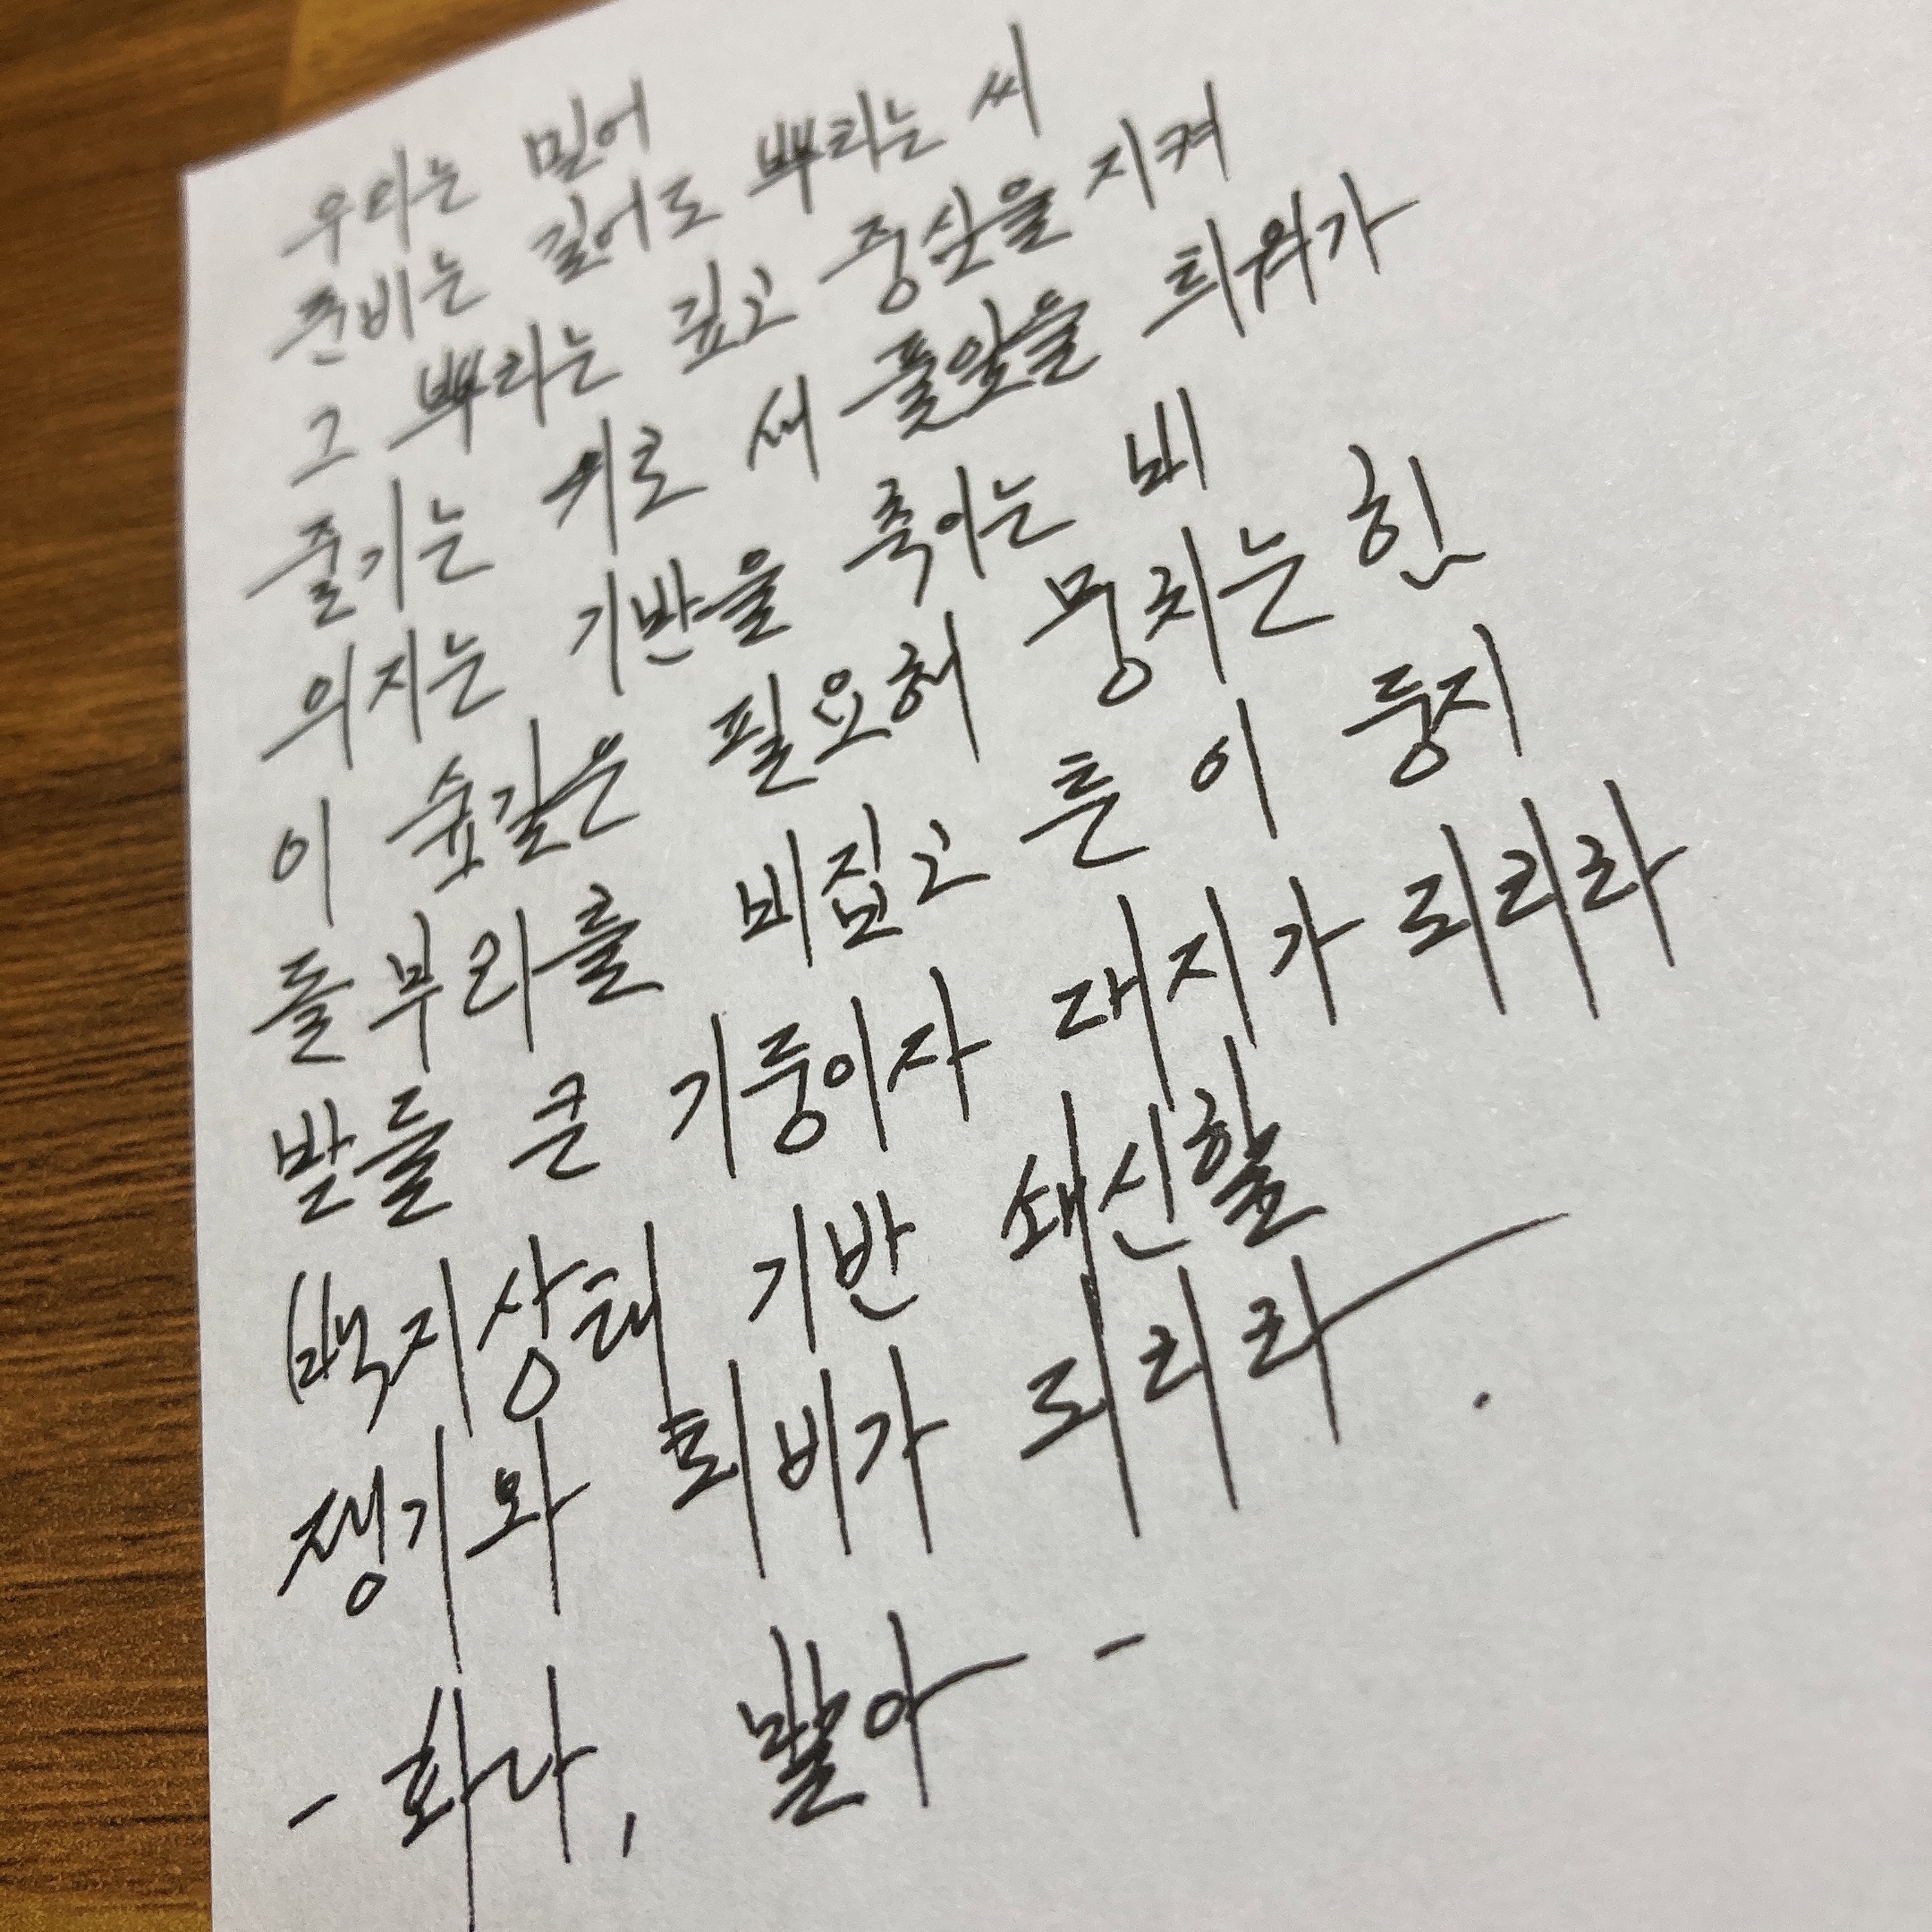 우리는 밀어
준비는 길어도 뿌리는 씨
그 뿌리는 깊고 중심을 지켜
줄기는 위로 새 풀잎을 틔워가
의지는 기반을 죽이는 비
이 숲길은 필요해 뭉치는 힘
돌부리를 비집고 튼 이 둥지
받들 큰 기둥이자 대지가 되리라
백지상태 기반 쇄신할
쟁기와 퇴비가 되리라
- 화나, 밟아 -